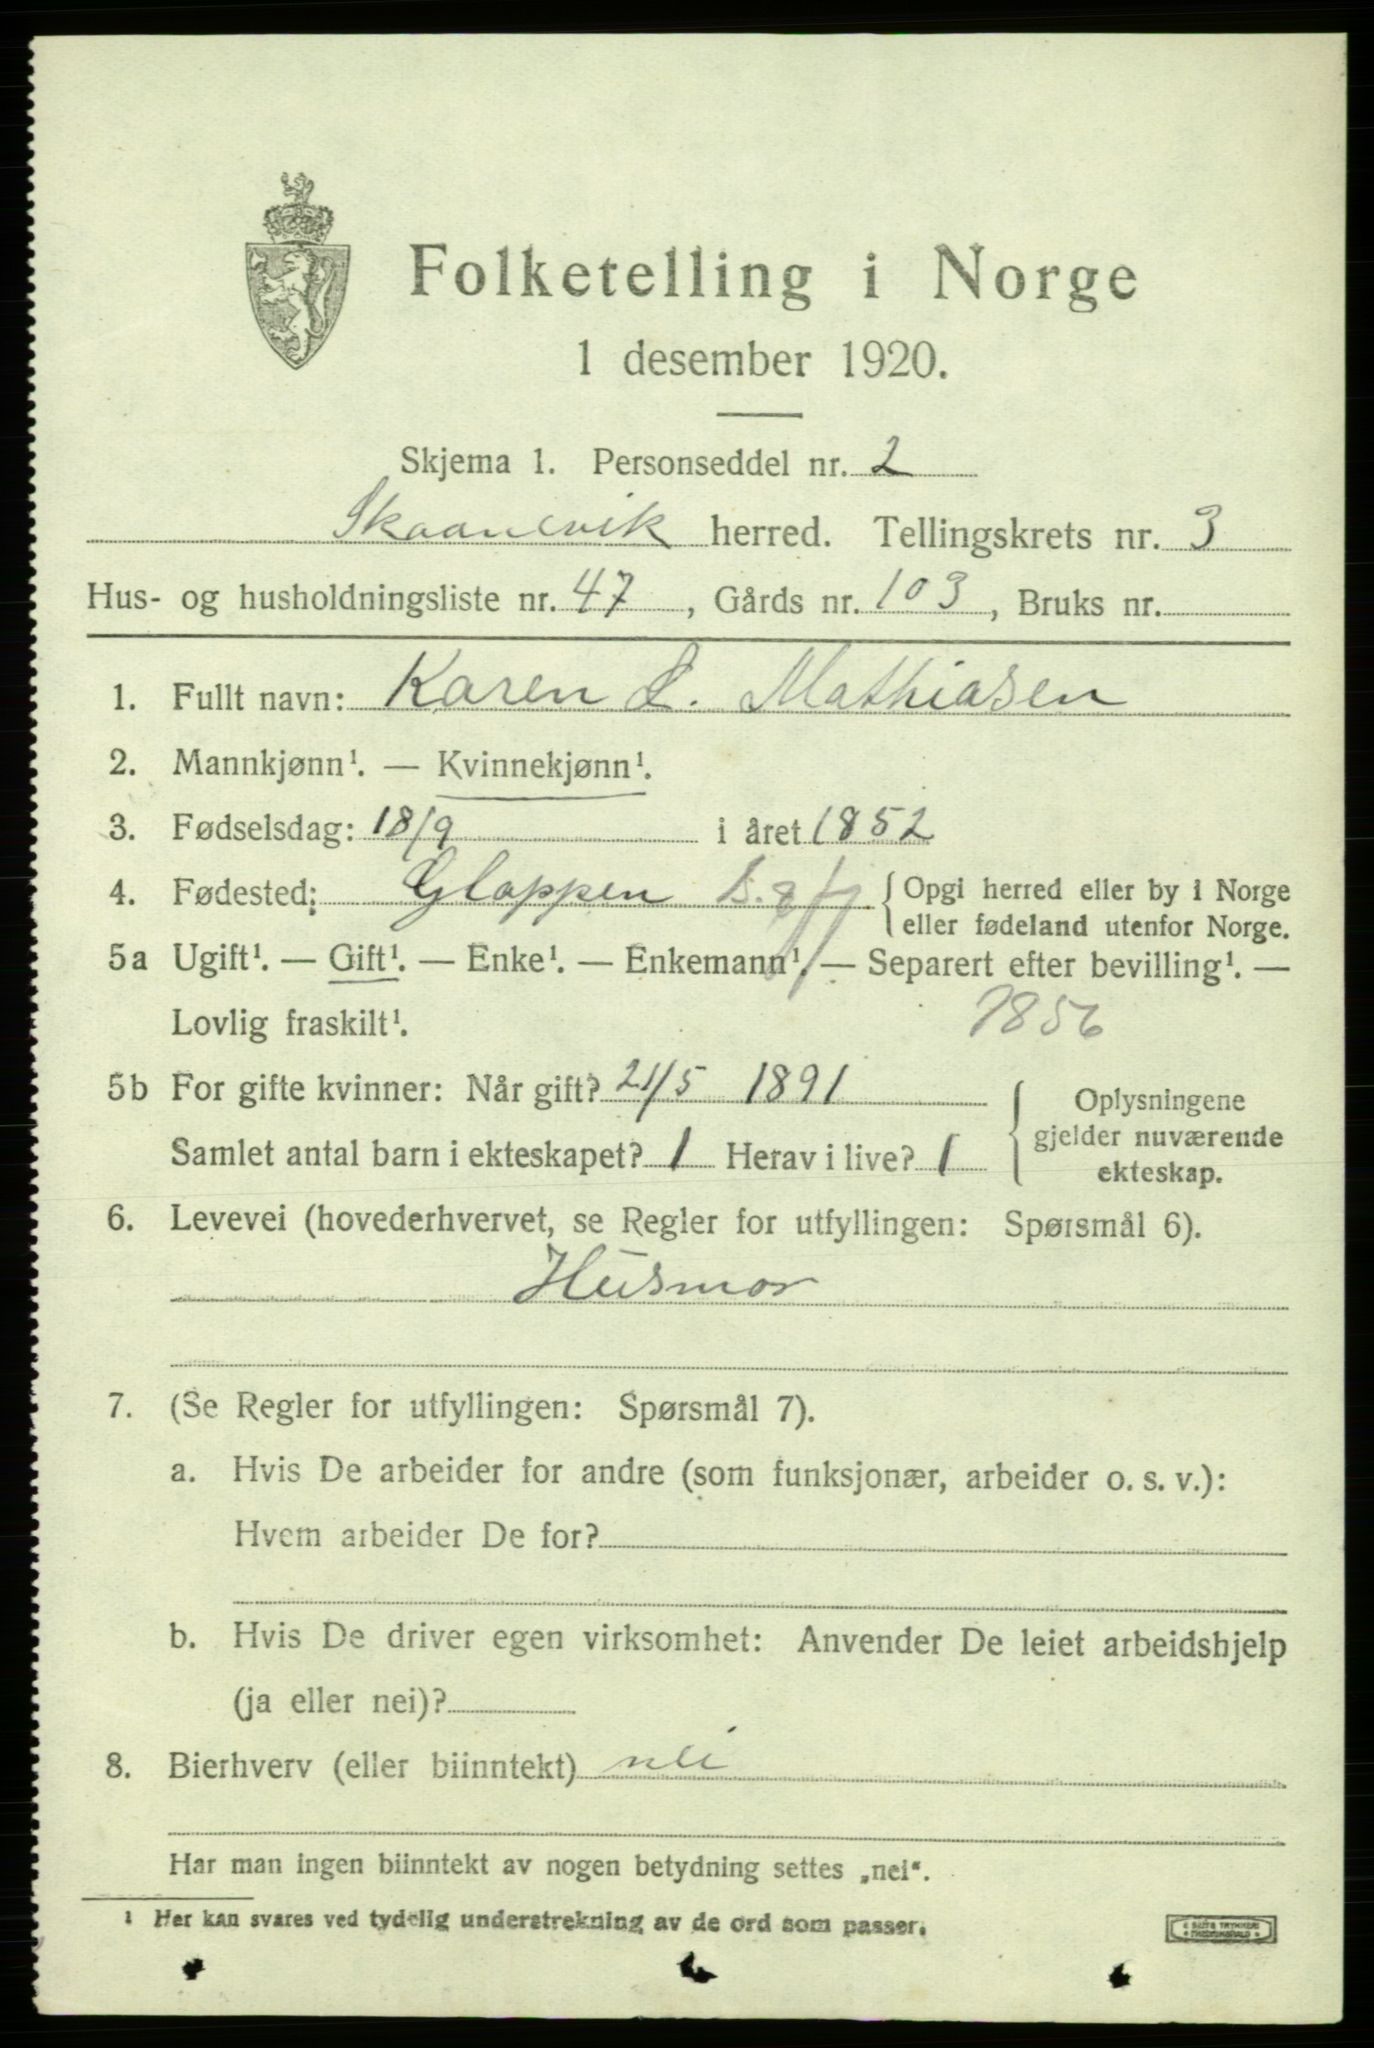 Folketelling i Norge
1 desember 1920.
Skjema 1. Personseddel nr. 2
Skaanevik herred. Tellingskrets nr. 3
Hus- og husholdningsliste nr. 47, Gårds nr. 103, Bruks nr.
1. Fullt navn: Karen L. Mathiasen
2. Mannkjønn¹. — Kvinnekjønn¹.
3. Fødselsdag: 18/9 i året 1852
4. Fødested: Gloppen { Opgi herred eller by i Norge
eller fødeland utenfor Norge.
5a Ugift¹. — Gift¹. — Enke¹. — Enkemann¹. — Separert efter bevilling¹. —
Lovlig fraskilt¹. 1856
5b For gifte kvinner: Når gift? 21/5 1891 { Oplysningene
gjelder nuværende
ekteskap.
Samlet antal barn i ekteskapet? 1 Herav i live? 1
6. Levevei (hovederhvervet, se Regler for utfyllingen: Spørsmål 6).
Husmor
7. (Se Regler for utfyllingen: Spørsmål 7).
a. Hvis De arbeider for andre (som funksjonær, arbeider o. s. v.):
Hvem arbeider De for?
b. Hvis De driver egen virksomhet: Anvender De leiet arbeidshjelp
(ja eller nei)?
8. Bierhverv (eller biinntekt) nei
Har man ingen biinntekt av nogen betydning settes „nei“.
¹ Her kan svares ved tydelig understrekning av de ord som passer.